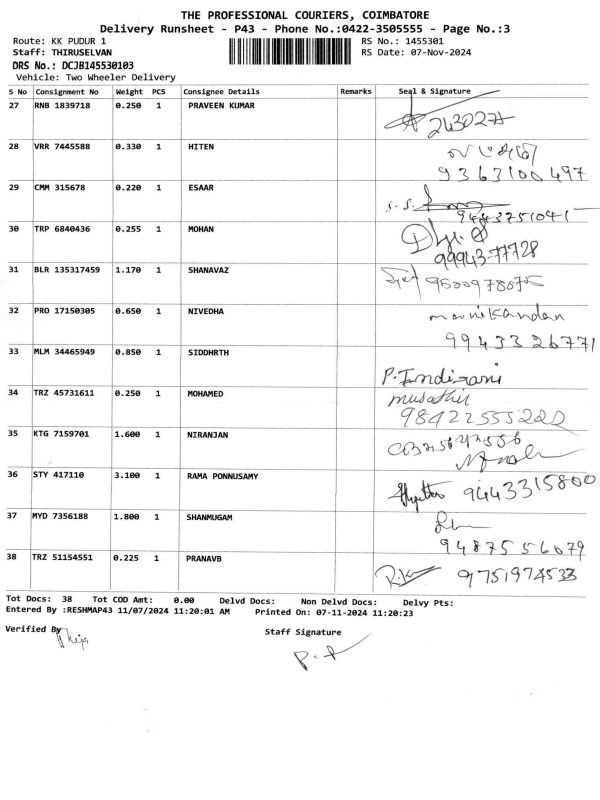 THE PROFESSIONAL COURIERS, COIMBATORE
Delivery Runsheet - P43 - Phone No.:0422-3505555 - Page No.:3
Route: KK PUDUR 1 RS No.: 1455301
Staff: THIRUSELVAN RS Date: 07-Nov-2024
DRS No.: DCJB145530103
Vehicle: Two Wheeler Delivery
S No Consignment No Weight PCS Consignee Details Remarks Seal & Signature
27 RNB 1839718 0.250 1 PRAVEEN KUMAR
28 VRR 7445588 0.330 1 HITEN
9363100497
29 CMM 315678 0.220 1 ESAAR
9443751041
30 TRP 6840436 0.255 1 MOHAN
99943-77728
31 BLR 135317459 1.170 1 SHANAVAZ
9500978075
32 PRO 17150305 0.650 1 NIVEDHA manikandan
9943326771
33 MLM 34465949 0.850 1 SIDDHRTH
P. Indirani
34 TRZ 45731611 0.250 1 MOHAMED musathir
35 KTG 7159701 1.600 1 NIRANJAN
36 STY 417110 3.100 1 RAMA PONNUSAMY
9443315800
37 MYD 7356188 1.800 1 SHANMUGAM
9487556079
38 TRZ 51154551 0.225 1 PRANAVB
9751974533
Tot Docs: 38 Tot COD Amt: 0.00 Delvd Docs: Non Delvd Docs: Delvy Pts:
Entered By :RESHMAP43 11/07/2024 11:20:01 AM Printed On: 07-11-2024 11:20:23
Verified By Staff Signature